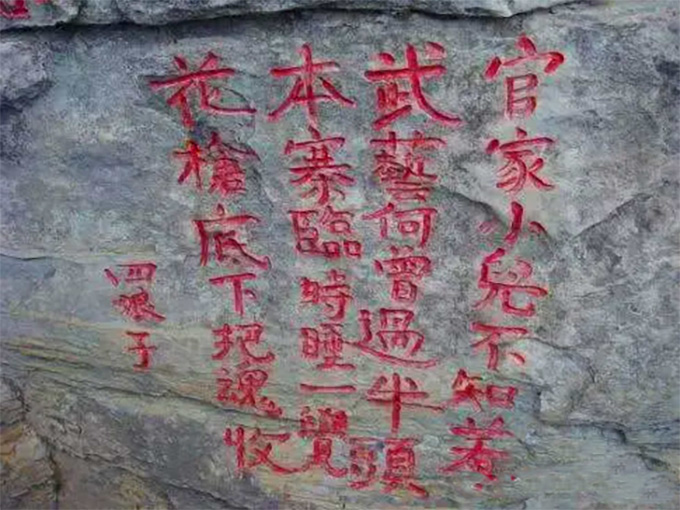 官家小兒不知羞
武藝何曾過牛頭
本寨臨時睡一覺
花槍底下把魂收
四娘子